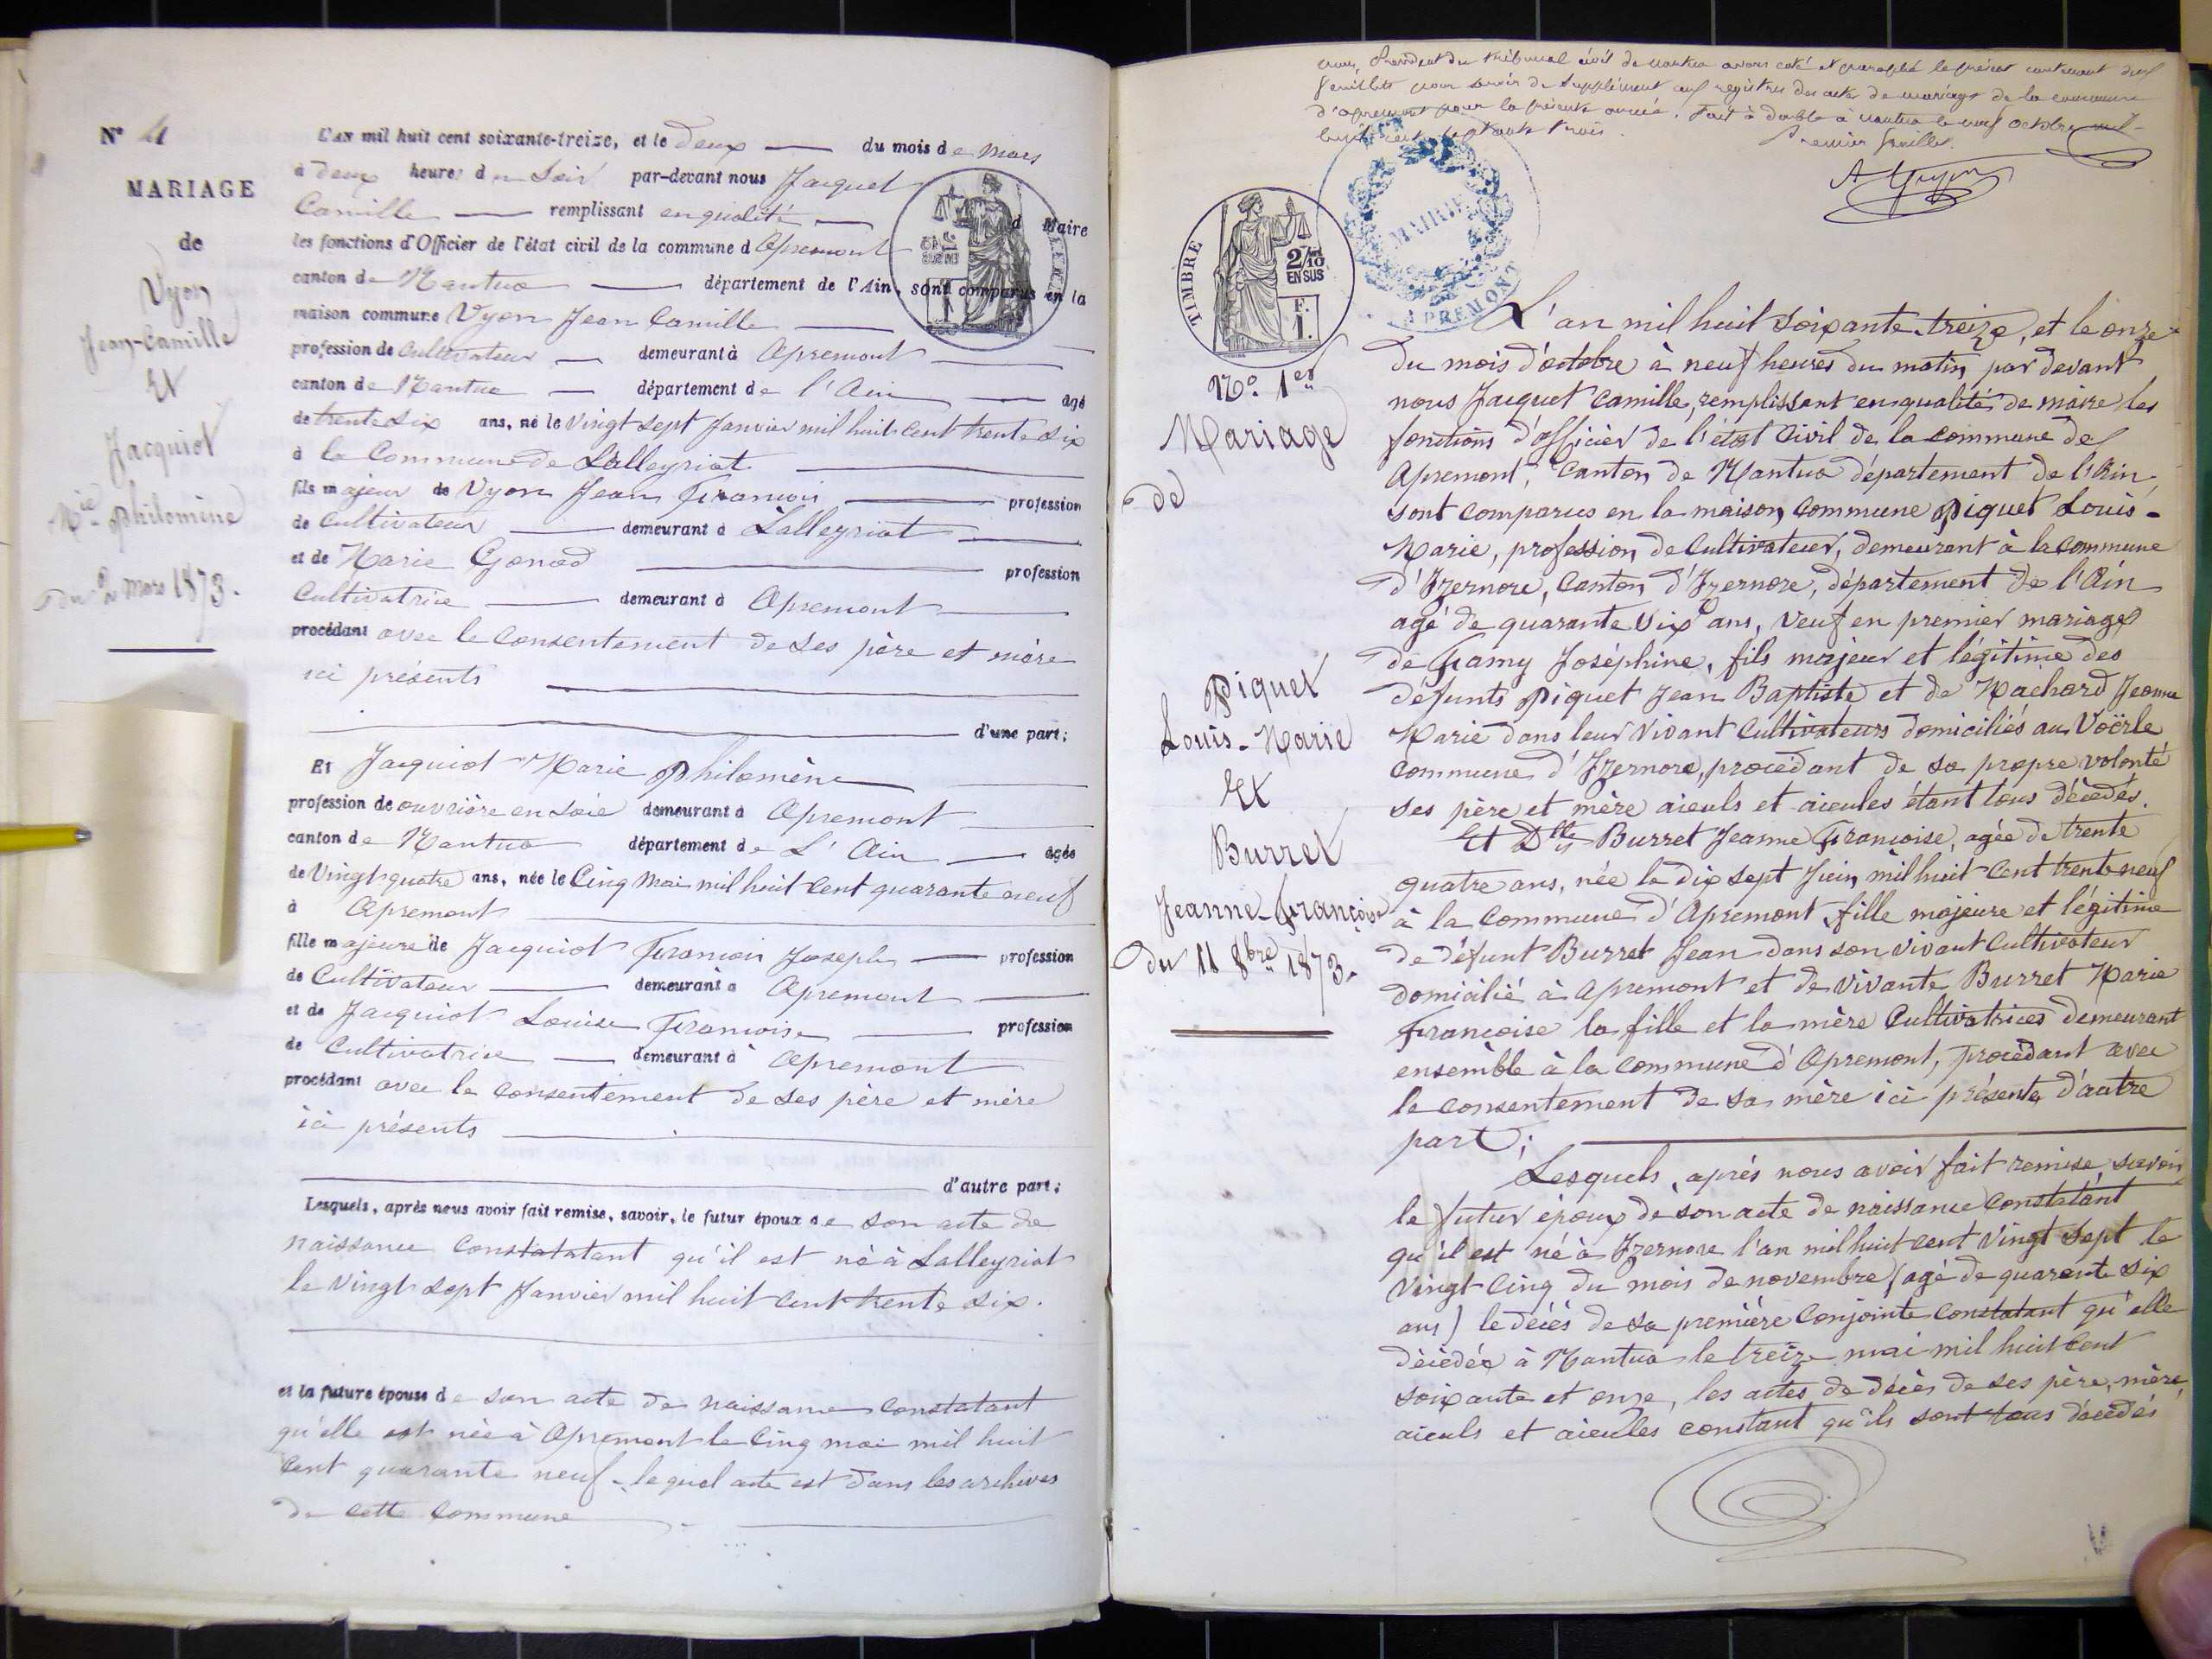 N° 4
MARIAGE
de
Vyon
Jean-Camille
Et
Jacquiot
Mie Philomène
du 2 Mars 1873.
L'AN mil huit cent soixante-treize, et le Deux du mois de Mars
à Deux heures du Soir par-devant nous Jacquet
Camille remplissant en qualité d Maire
les fonctions d'Officier de l'état civil de la commune d Apremont
canton de Nantua département de l'Ain, sont comparus en la
maison commune Vyon Jean Camille
profession de Cultivateur demeurant à Apremont
canton de Nantua département de l'Ain agé
de trente six ans, né le Vingt sept Janvier mil huit cent trente six
à la Commune de Lalleyriat
fils majeur de Vyon Jean François profession
de Cultivateur demeurant à Lalleyriat
et de Marie Gonod profession
Cultivatrice demeurant à Apremont
procédant avec le Consentement de ses père et mère
ici présents
d'une part;
Et Jacquiot Marie Philomène
profession de ouvrière en soie demeurant à Apremont
canton de Nantua département de L'Ain agée
de Vingt quatre ans, née le Cinq Mai mil huit Cent quarante neuf
à Apremont
fille majeure de Jacquiot François Joseph profession
de Cultivateur demeurant à Apremont
et de Jacquiot Louise Françoise profession
de Cultivatrice demeurant à Apremont
procédant avec le Consentement de ses père et mère
ici présents
d'autre part;
Lesquels, après nous avoir fait remise, savoir, le futur époux de son acte de
naissance Constatatant qu'il est né à Lalleyriat
le Vingt sept Janvier mil huit Cent trente six.
et la future épouse de son acte de naissance Constatant
qu'elle est née à Apremont le Cinq mai mil huit
Cent quarante neuf - lequel acte est dans les archives
de cette Commune
nous, Président du tribunal civil de nantua avons coté et paraphé le présent contenant deux
feuillets pour servir de Supplément aux registres des actes de mariage de la commune
d'apremont pour la présente année. Fait à double à nantua le neuf octobre mil
huit cent soixante treize.
Premier feuillet.
A Guyon
TIMBRE
2/10
EN SUS
F.
1.
MAIRIE
APREMONT
N° 1er
Mariage
de
Piquet
Louis-Marie
Et
Burret
Jeanne-Françoise
du 11 8bre 1873.
L'an mil huit Soixante-treize, et le onze
du mois d'octobre à neuf heures du matin, par devant
nous Jacquet Camille, remplissant en qualité de maire les
fonctions d'officier de l'état Civil de la commune de
Apremont, Canton de Nantua département de l'Ain,
sont comparus en la maison commune Piquet Louis-
Marie, profession de Cultivateur, demeurant à la commune
d'Izernore, Canton d'Izernore, département de l'Ain
agé de quarante six ans, Veuf en premier mariage
de Famy Joséphine, fils majeur et légitime des
défunts Piquet Jean Baptiste et de Machard Jeanne
Marie dans leur Vivant Cultivateurs domiciliés au Voërle
commune d'Izernore, procédant de sa propre volonté
ses père et mère aieuls et aieules étant tous décédés.
Et Dlle Burret Jeanne Françoise, agée de trente
quatre ans, née le dix sept Juin mil huit Cent trente neuf
à la Commune d'Apremont fille majeure et légitime
de défunt Burret Jean dans son vivant Cultivateur
domicilié à Apremont et de Vivante Burret Marie
Françoise la fille et la mère Cultivatrices demeurant
ensemble à la commune d'Apremont, procédant avec
le consentement de sa mère ici présente d'autre
part;
Lesquels, après nous avoir fait remise, savoir
le futur époux de son acte de naissance Constatant
qu'il est né à Izernore l'an mil huit cent vingt sept le
Vingt Cinq du mois de novembre (agé de quarante six
ans) le décès de sa première Conjointe Constatant qu'elle
décédée à Nantua le treize mai mil huit Cent
soixante et onze, les actes de décès de ses père, mère,
aieuls et aieules constant qu'ils sont tous décédés